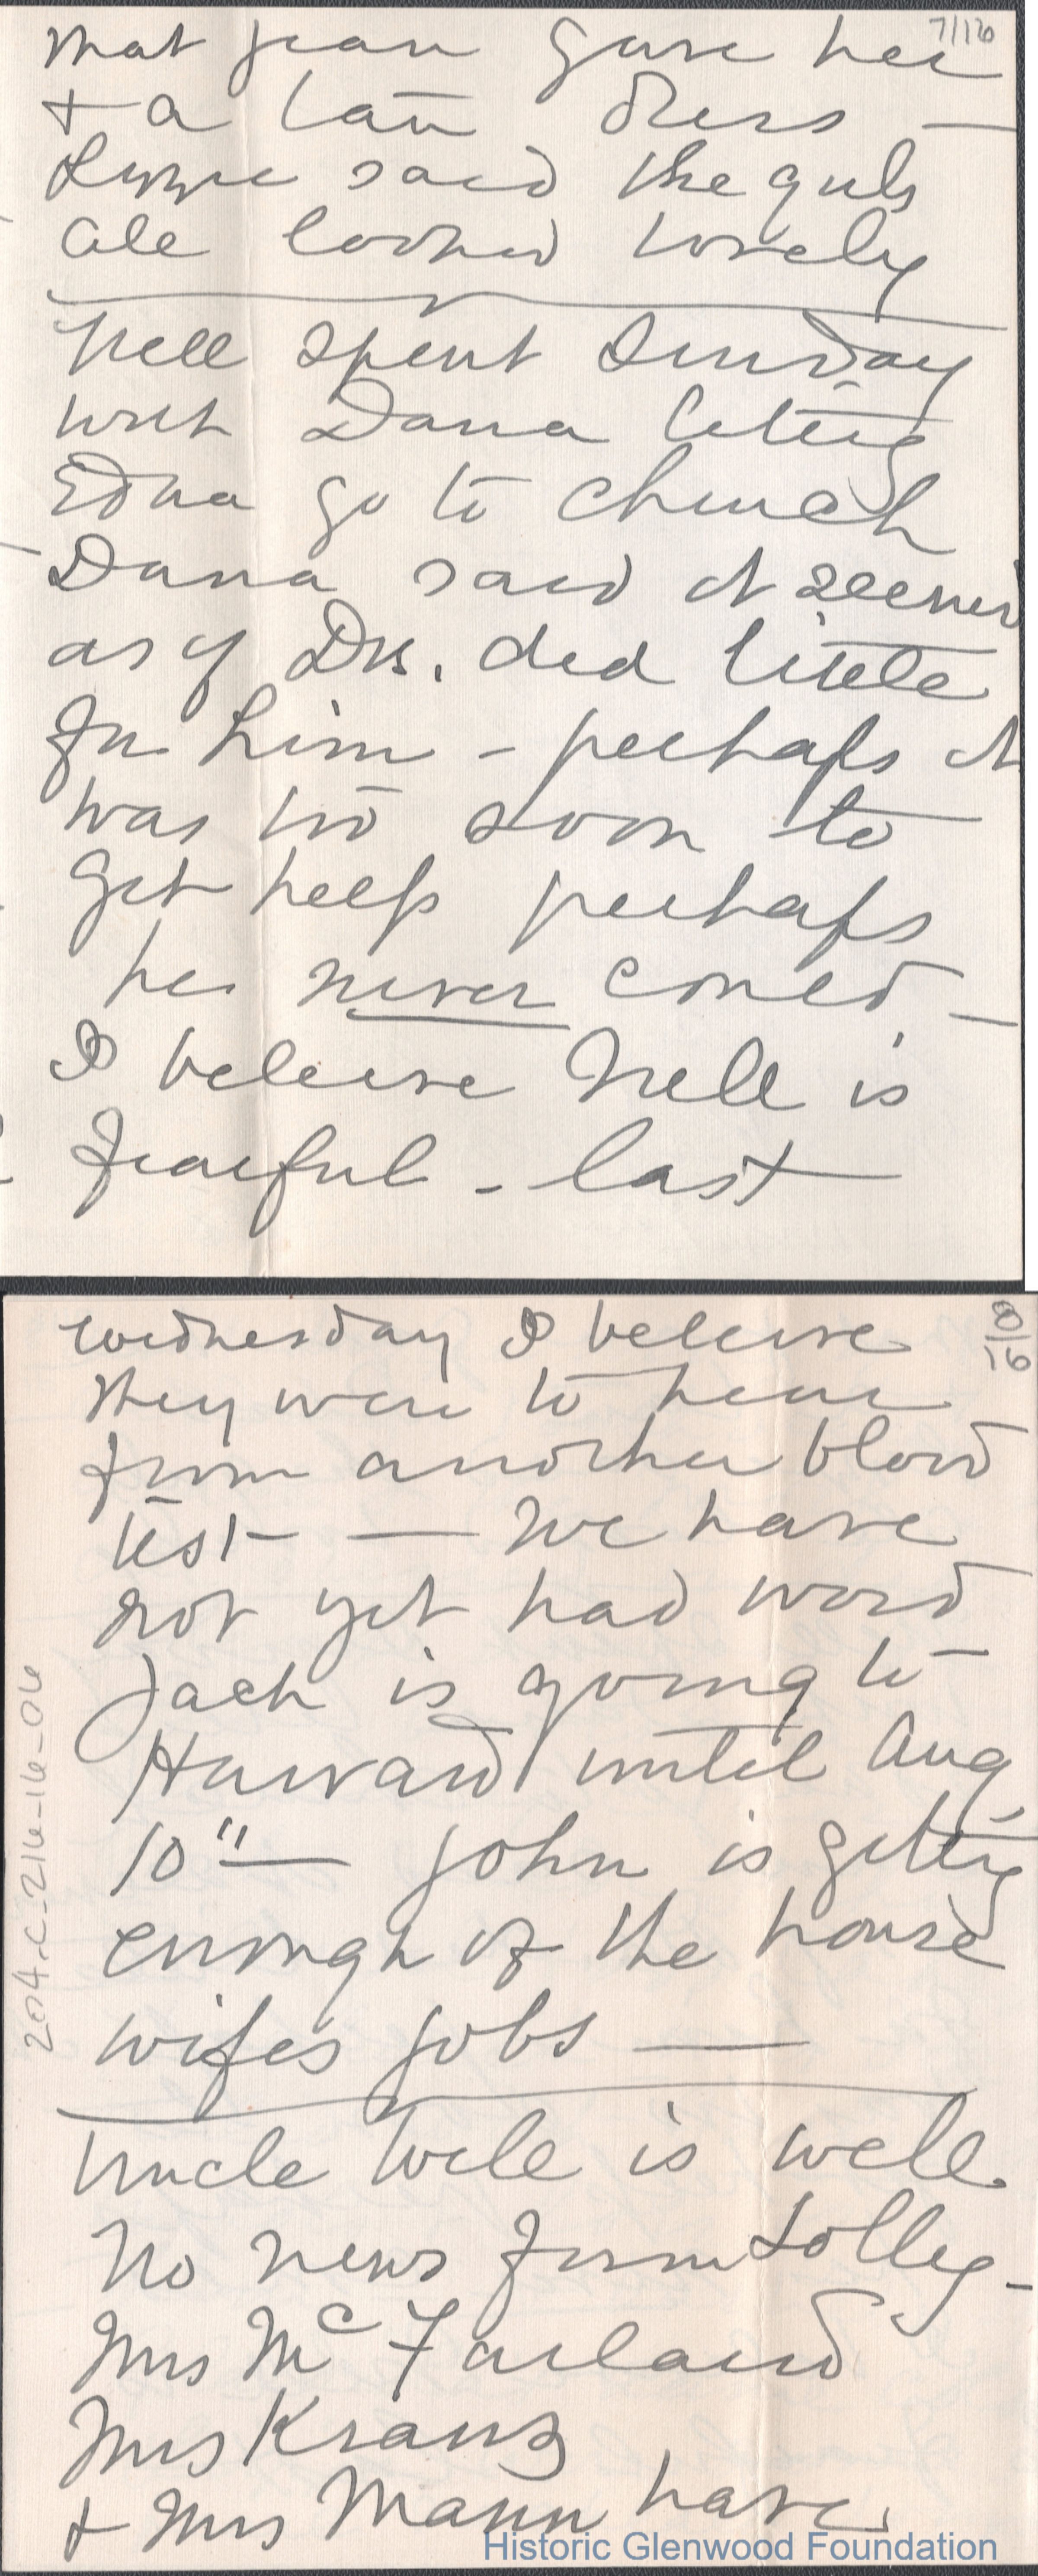 7/16
that Jean gave her
+ a tan dress —
Lizzie said the girls
all looked lovely
Nell spent Sunday
with Dana letting
Edna go to church
Dana said it seemed
as if Drs. did little
for him - perhaps it
was too soon to
get help perhaps
he never could —
I believe Nell is
fearful - last
8/16
Wednesday I beleive
they were to hear
from another blood
test — We have
not yet had word
Jack is going to
Harvard until Aug,
10" — John is getting
enough of the house
wifes jobs —
Uncle Will is well.
No news from Lolley -
Mrs McFarland
Mrs Kranz
+ Mrs Mann have
204-C-216-16-06
Historic Glenwood Foundation